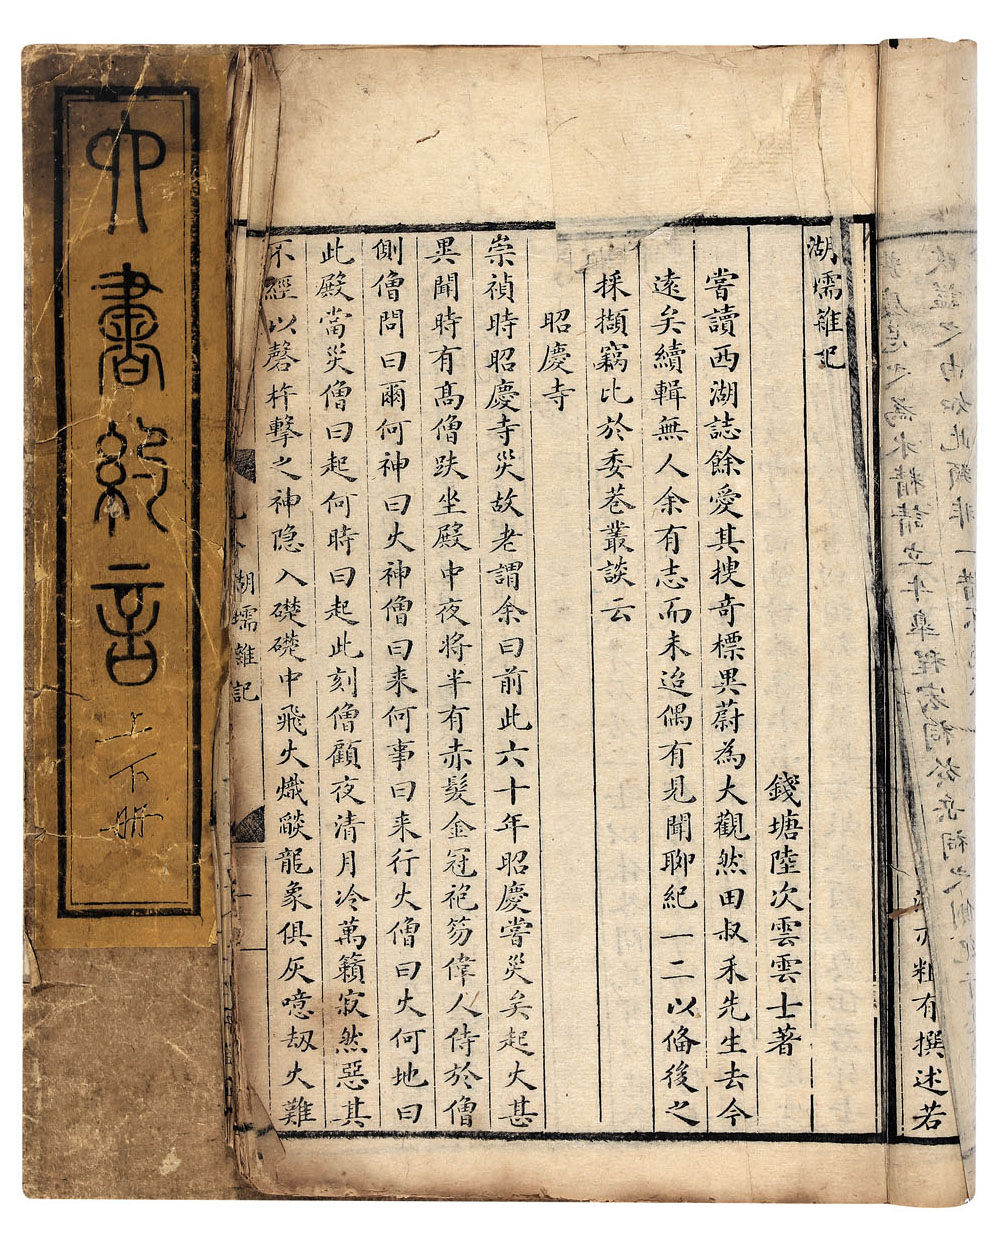 湖壖雜記
錢塘陸次雲雲士著
嘗讀西湖誌餘愛其搜奇標異蔚為大觀然田叔禾先生去今
遠矣續輯無人余有志而未迨偶有見聞聊紀一二以俻後之
採擷竊比於委巷叢談云
昭慶寺
崇禎時昭慶寺災故老謂余曰前此六十年昭慶嘗災矣起火甚
異聞時有高僧趺坐殿中夜将半有赤髮金冠袍笏偉人侍於僧
側僧問曰爾何神曰火神僧曰来何事曰来行火僧曰火何地曰
此殿當災僧曰起何時曰起此刻僧顧夜清月冷萬籟寂然惡其
不經以磬杵擊之神隐入礎礎中飛火熾燄龍象俱灰噫刼火難
湖壖雜記
亦粗有撰述若
六書約言
上下冊